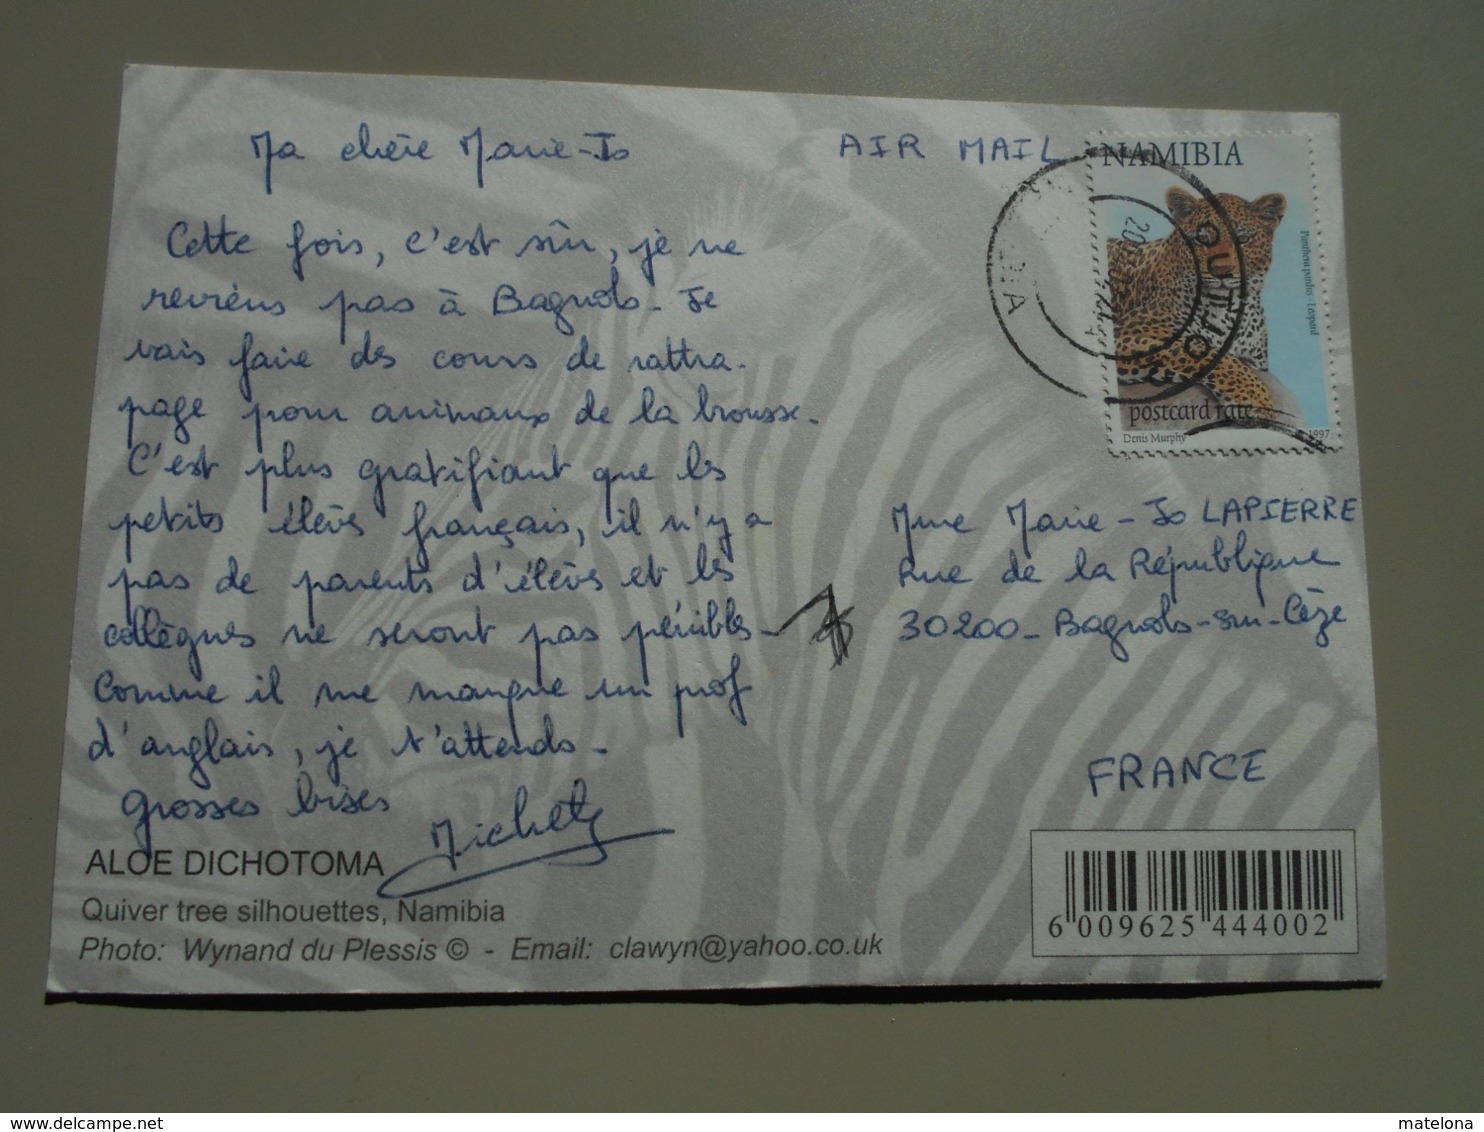 Ma chère Marie-Jo
Cette fois, c'est sûr, je ne
reviens pas à Bagnols. Je
vais faire des cours de rattra-
page pour animaux de la brousse.
C'est plus gratifiant que les
petits élèves français, il n'y a
pas de parents d'élèves et les
collègues ne seront pas pénibles.
Comme il me manque un prof
d'anglais, je t'attends.
Grosses bises
AIR MAIL
NAMIBIA
Panthera pardus - Leopard
postcard rate
Denis Murphy 1997
OUTJO
Mme Marie-Jo LAPIERRE
Rue de la République
30200 - Bagnols-sur-Cèze
FRANCE
ALOE DICHOTOMA
Quiver tree silhouettes, Namibia
Photo: Wynand du Plessis © - Email: clawyn@yahoo.co.uk
6 009625 444002
delcampe.net
matelona